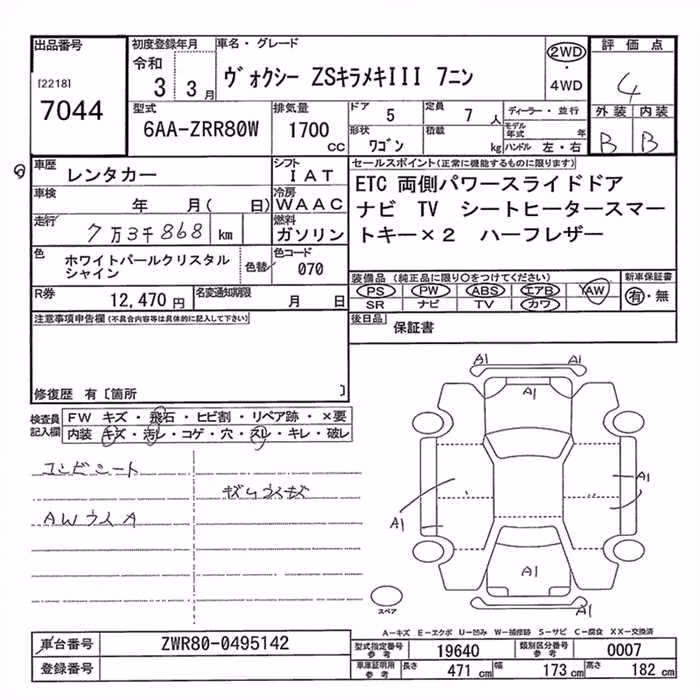 出品番号
[2218]
7044
初度登録年月
令和
3 3月
車名・グレード
ヴォクシー ZSキラメキIII 7ニン
2WD
・
4WD
評価点
4
外装 内装
B B
型式
6AA-ZRR80W
排気量
1700
cc
ドア
5
定員
7人
形状
ワゴン
積載
kg
ディーラー・並行
モデル年式 年
ハンドル 左・右
車歴
レンタカー
シフト
IAT
車検
年 月( 日)
冷房
WAAC
走行
7万3千868 km
燃料
ガソリン
色
ホワイトパールクリスタル
シャイン
色替
色コード
070
R券
12,470 円
名変通知期限
月 日
セールスポイント(正常に機能するものに限ります)
ETC 両側パワースライドドア
ナビ TV シートヒータースマー
トキー×2 ハーフレザー
装備品 (純正品に限り○をつけてください)
PS PW ABS エアB AW
SR ナビ TV カワ
新車保証書
有・無
後日品
保証書
注意事項申告欄(不具合内容等は具体的に記入して下さい)
修復歴 有[箇所 ]
検査員
記入欄
FW キズ・飛石・ヒビ割・リペア跡・×要
内装 キズ・汚レ・コゲ・穴・スレ・キレ・破レ
コンビシート
AWウスA
A1 A1
A1
A1
A1
A1
スペア
A-キズ E-エクボ U-凹み W-補修跡 S-サビ C-腐食 XX-交換済
車台番号
ZWR80-0495142
登録番号
型式指定番号
参考
19640
類別区分番号
参考
0007
車庫証明用
参考
長さ
471 cm
幅
173 cm
高さ
182 cm